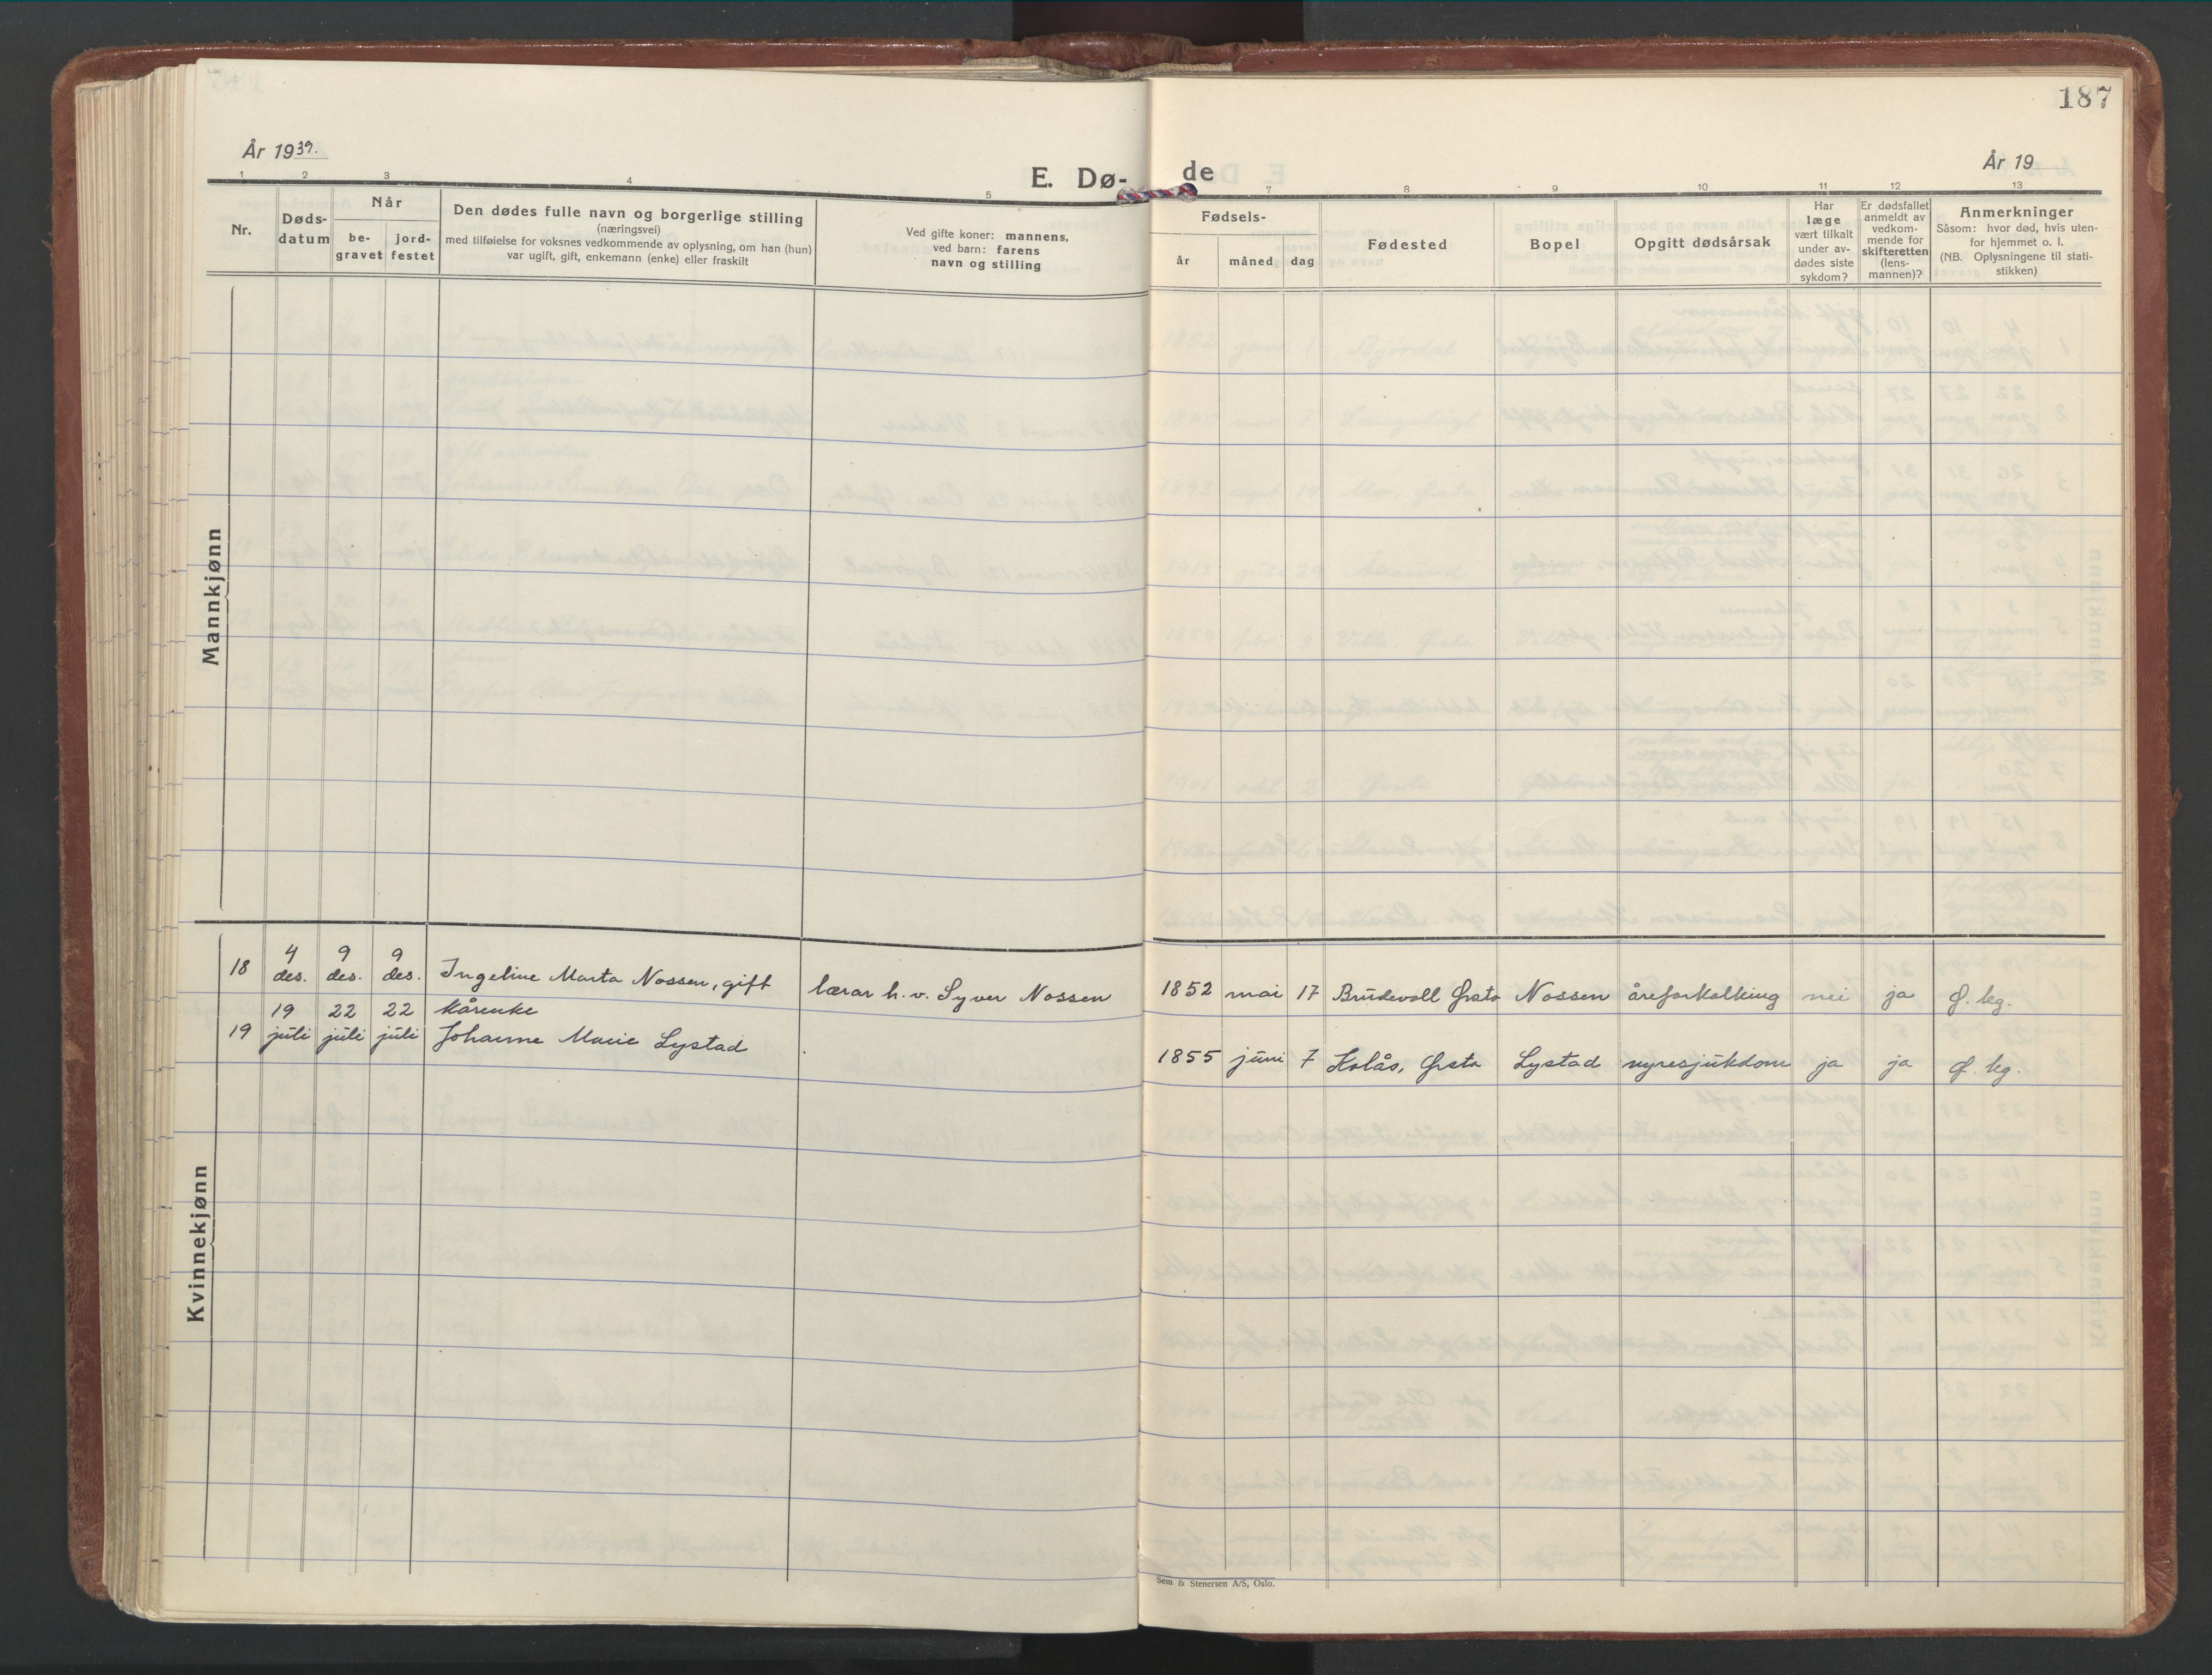 187
År 1939.
År 19
E. Dø-
de
1 2 3 4 5 7 8 9 10 11 12 13
Nr.
Døds-
datum
Når
be-
gravet
jord-
festet
Den dødes fulle navn og borgerlige stilling
(næringsvei)
med tilføielse for voksnes vedkommende av oplysning, om han (hun)
var ugift, gift, enkemann (enke) eller fraskilt
Ved gifte koner: mannens,
ved barn: farens
navn og stilling
Fødsels-
år måned dag
Fødested
Bopel
Opgitt dødsårsak
Har
læge
vært tilkalt
under av-
dødes siste
sykdom?
Er dødsfallet
anmeldt av
vedkom-
mende for
skifteretten
(lens-
mannen)?
Anmerkninger
Såsom: hvor død, hvis uten-
for hjemmet o. l.
(NB. Oplysningene til stati-
stikken)
Mannkjønn
Kvinnekjønn
4 9 9
18 des. des. des. Ingeline Marta Nossen, gift lærar h. v. Syver Nossen 1852 mai 17 Brudevoll Ørsta Nossen åreforkalking nei ja Ø. kg.
19 22 22 kårenke
19 juli juli juli Johanne Marie Lystad 1855 juni 7 Kolås, Ørsta Lystad nyresjukdom ja ja Ø. kg.
Sem & Stenersen A/S, Oslo.